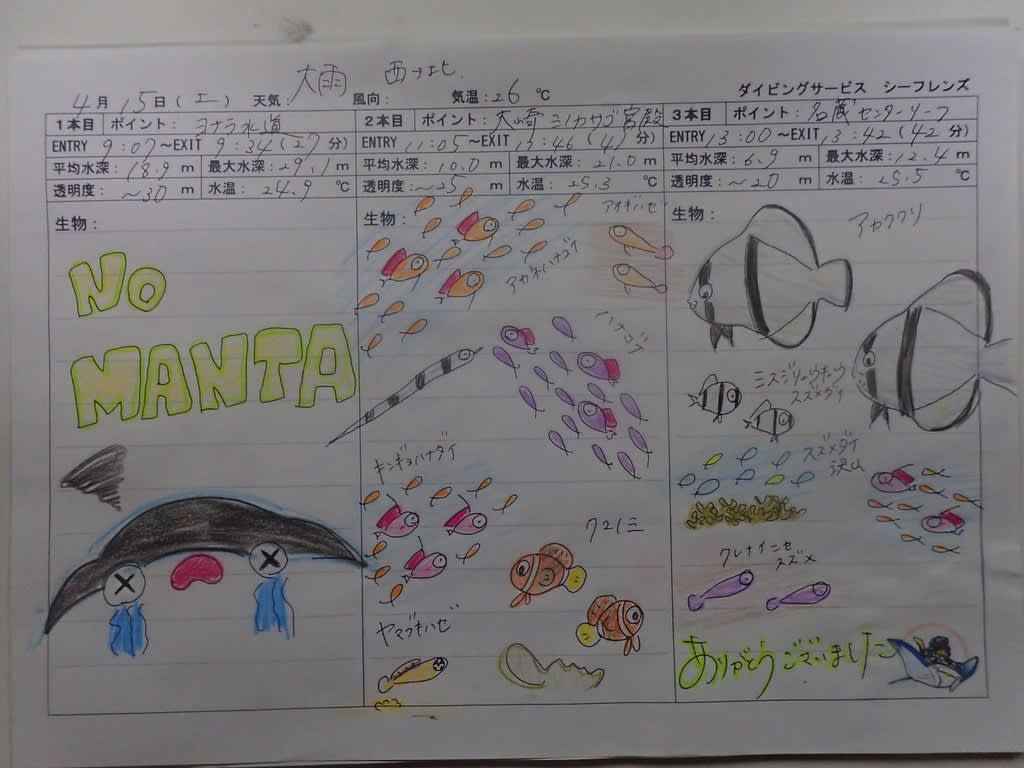 大雨 西→北
ダイビングサービス シーフレンズ
4月15日(土) 天気: 風向: 気温:26℃
1本目 ポイント: ヨナラ水道
ENTRY 9:07~EXIT 9:34(27分)
平均水深:18.9m 最大水深:29.1m
透明度:~30m 水温:24.9℃
生物:
NO
MANTA
2本目 ポイント: 大崎ミノカサゴ宮殿
ENTRY 11:05~EXIT 11:46(41分)
平均水深:10.0m 最大水深:21.0m
透明度:~25m 水温:25.3℃
生物:
アオギハゼ
アカネハナゴイ
ハナゴイ
キンギョハナダイ
クマノミ
ヤマブキハゼ
3本目 ポイント: 名蔵センターリーフ
ENTRY 13:00~EXIT 13:42(42分)
平均水深:6.9m 最大水深:12.4m
透明度:~20m 水温:25.5℃
生物:
アカククリ
ミスジリュウキュウ
スズメダイ
スズメダイ
沢山
クレナイニセ
スズメ
ありがとうございました